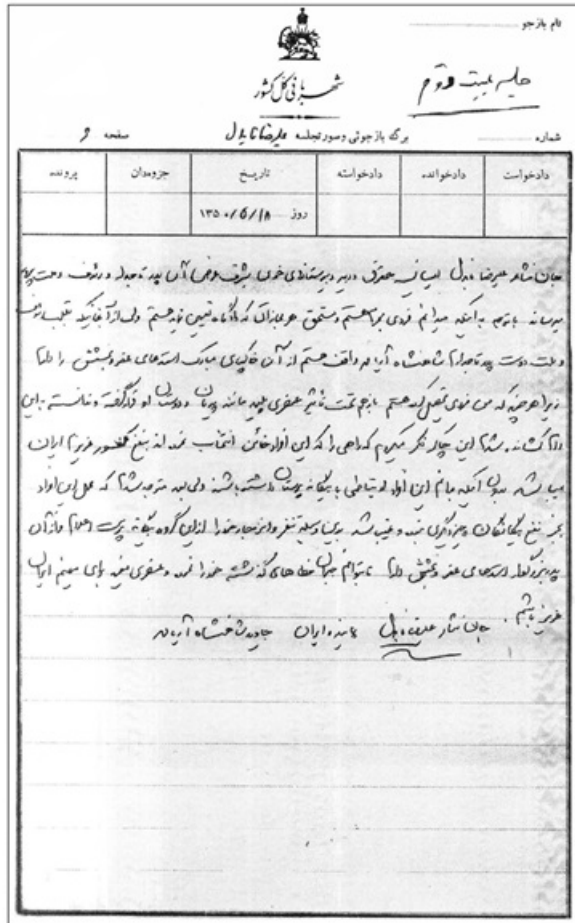 نام بازجو
جلسه بیست و دوم
شهربانی کل کشور
شماره برگ بازجوئی و صورتجلسه علیرضا نابدل صفحه و
دادخواست دادخوانده دادخواسته تاریخ جزوه‌دان پرونده
روز ۱۳۵۰/۵/۱۸
جان نثار علیرضا نابدل لیسانس حقوق دبیر دبیرستانهای خوی بشرف عرض آن پدر تاجدار و رئوف و
میرساند با توجه به اینکه میدانم فردی مجرم هستم و مستحق هر مجازاتی که دادگاه تعیین نماید هستم ولی از آنجائیکه به قلب رئوف
و ملت دوست پدر تاجدارم شاهنشاه آریامهر واقف هستم از آن خاکپای مبارک استدعای عفو و بخشش را دارم
زیرا هر چند که من فردی تحصیل کرده هستم باز هم تحت تاثیر عناصری پلید مانند و دوستان او قرار گرفته و نتوانسته به این
این چاکر فکر میکردم که راهی را که این افراد خائن انتخاب نموده‌اند بنفع کشور عزیزم ایران
میباشد بدون آنکه بدانم این افراد ارتباطی با بیگانه پرستان داشته باشند ولی بعد متوجه شدم که عمل این افراد
بجز نفع بیگانگان چیز دیگری نبوده و نمیباشد بدینوسیله تنفر و انزجار خود را از این گروه بیگانه پرست اعلام و از آن
پدر بزرگوار استدعای عفو و بخشش دارم تا بتوانم جبران خطاهای گذشته خود را نموده و عنصری مفید برای میهنم ایران
عزیز باشم.
جان نثار علیرضا نابدل پاینده ایران جاوید شاهنشاه آریامهر